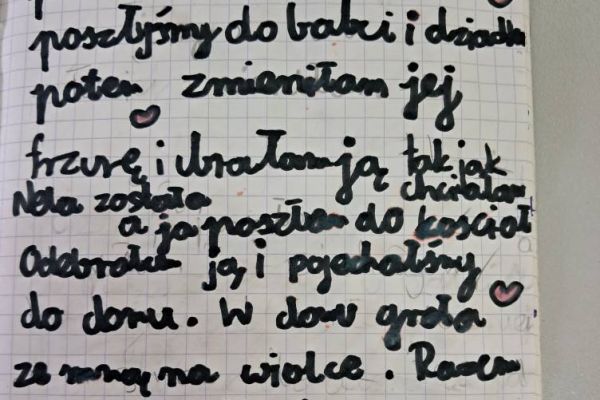 poszłyśmy do babci i dziadka
potem zmieniłam jej
frzurę i ubrałam ją tak jak
chciałam
Nela została
a ja poszłam do kościoł
Odebrałam ją i pojechałyśmy
do domu. W domu grała
ze mną na wiolce. Razem